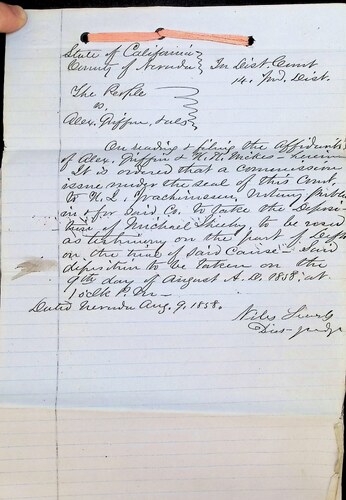 State of California
County of Nevada In Dist. Court
14. Jud. Dist.
The People
vs.
Alex. Griffin, & als
On reading & filing the affidavits
of Alex. Griffin & herein
It is ordered that a commission
issue under the seal of this Court,
to H. L. Notary Public
in & for said Co. to take the Deposi-
tion of Michael to be read
as testimony on the part of Defts
on the trial of said cause - Said
deposition to be taken on the
9th day of August A.D. 1858. at
1 o'clk P.M.
Dated Nevada Aug. 9. 1858.
Niles Searls
Dist-judge